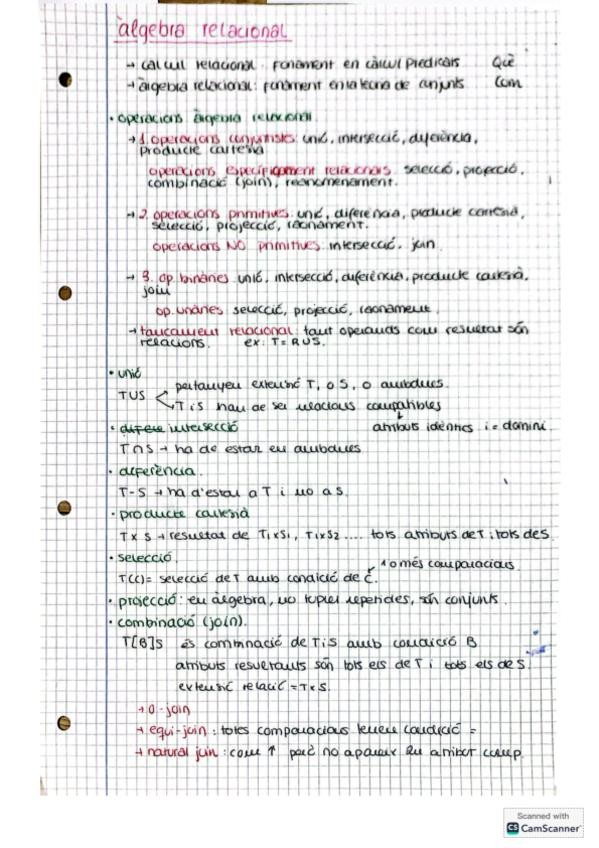 àlgebra relacional
→ càlcul relacional: fonament en càlcul predicats Què
→ àlgebra relacional: fonament en la teoria de conjunts Com
• operacions àlgebra relacional
→ 1. operacions conjuntistes: unió, intersecció, diferència,
producte cartesià
operacions específicament relacionals: selecció, projecció,
combinació (join), reanomenament.
→ 2. operacions primitives: unió, diferència, producte cartesià,
selecció, projecció, raonament.
operacions NO primitives: intersecció, join
→ 3. op. binàries: unió, intersecció, diferència, producte cartesià,
join
op. unàries: selecció, projecció, raonament.
→ tancament relacional: tant operands com resultat són
relacions. ex: T = RUS.
• unió
TUS
pertanyen extensió T, o S, o ambdues.
T i S han de ser relacions compatibles
• intersecció
atributs idèntics i = domini
T∩S → ha de estar en ambdues
• diferència.
T-S → ha d'estar a T i no a S.
• producte cartesià
T x S → resultat de T1xS1, T1xS2 .... tots atributs de T i tots de S.
• selecció.
1 o més comparacions.
T(C) = selecció de T amb condició de C.
• projecció: en àlgebra, no tuples repetides, són conjunts.
• combinació (join).
T[B]S és combinació de T i S amb condició B
atributs resultants són tots els de T i tots els de S.
extensió relació = TxS.
→ θ-join
→ equi-join: totes comparacions tenen condició =
→ natural join: com ↑ però no apareix un atribut comp.
Scanned with
CS CamScanner